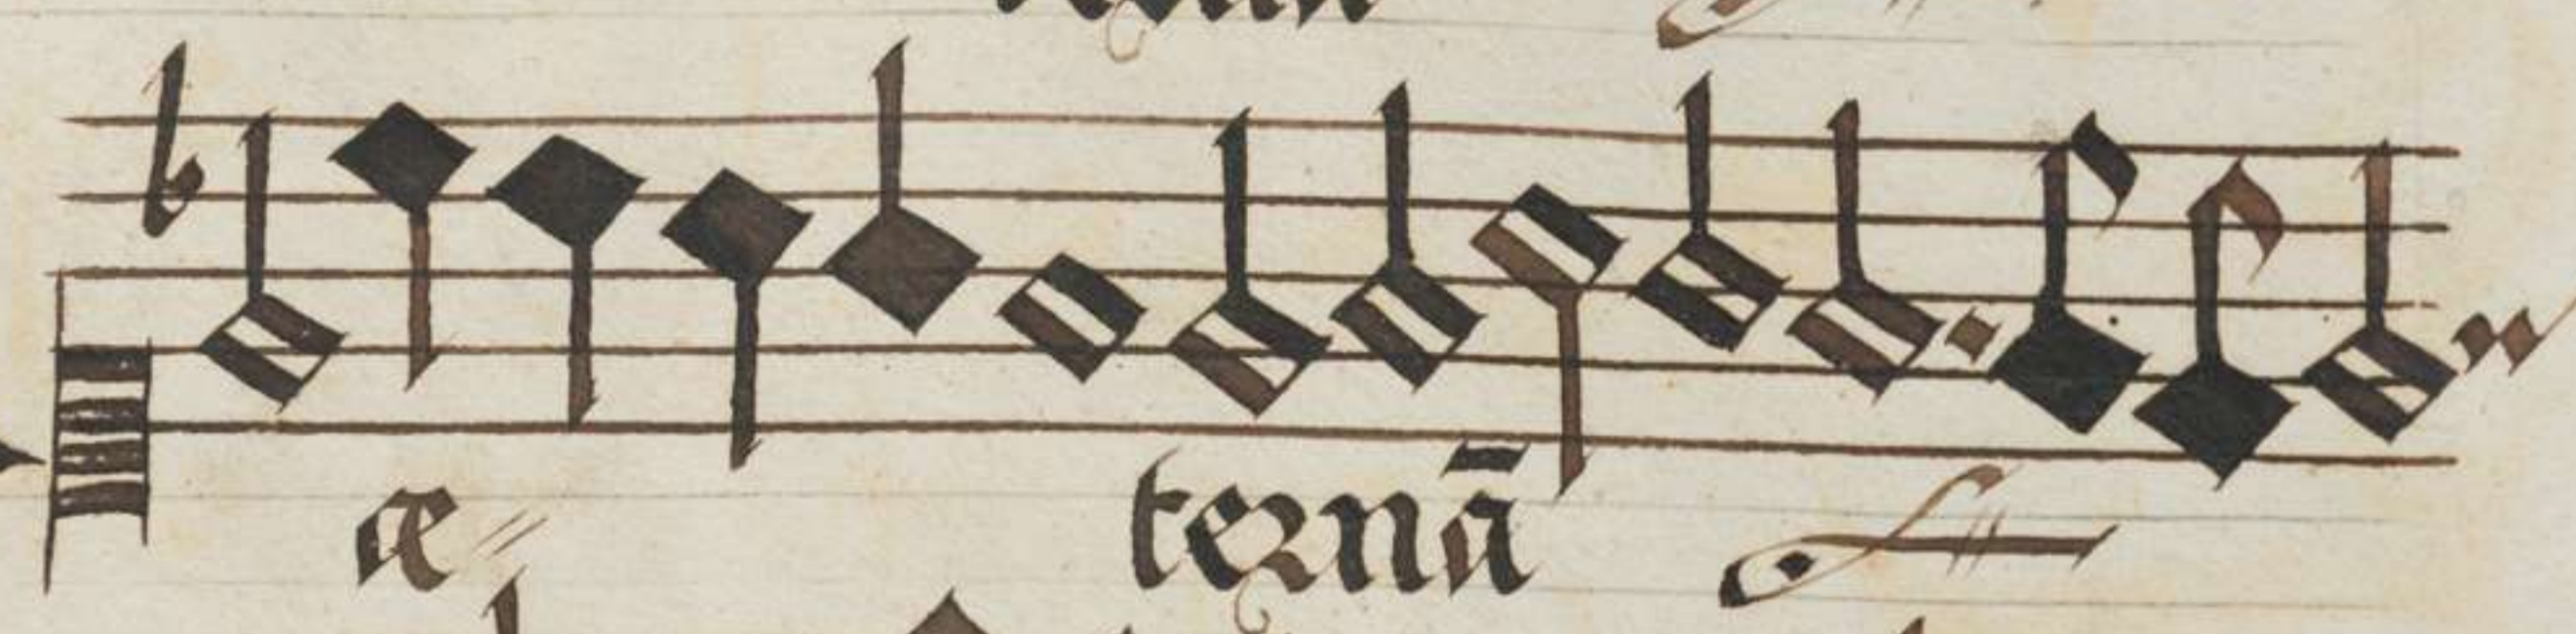 æ〃 ternā